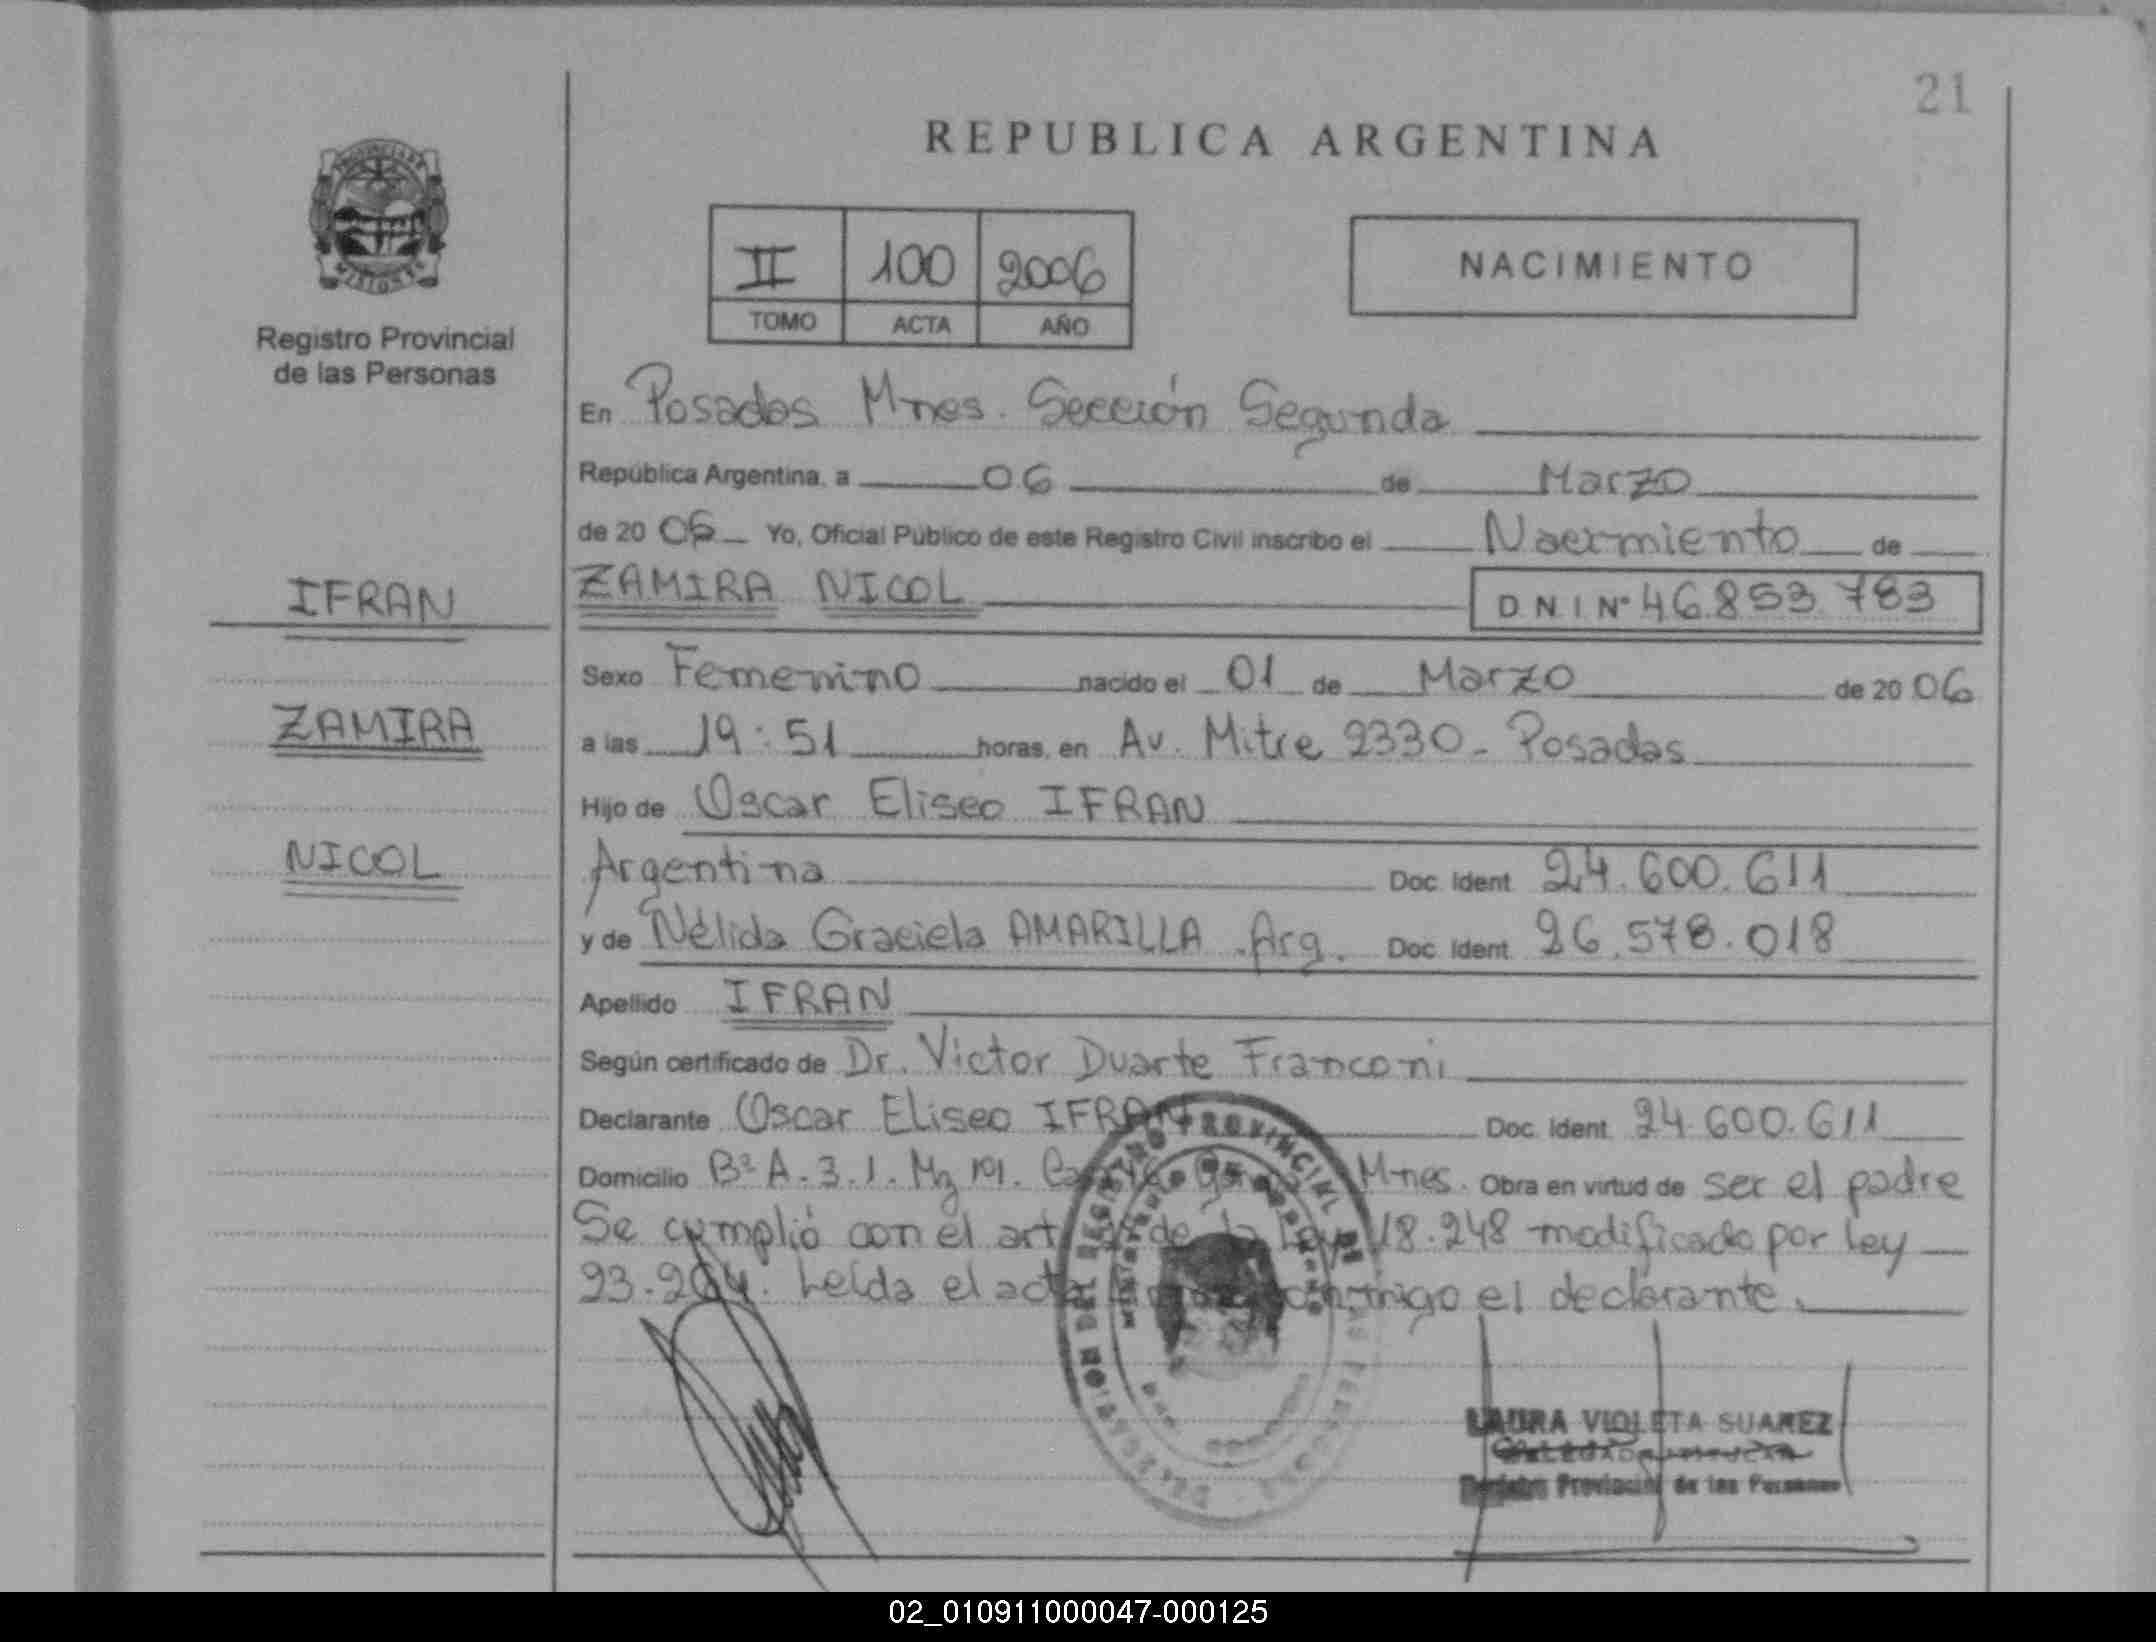 21
REPUBLICA ARGENTINA
II 100 2006
TOMO ACTA AÑO
NACIMIENTO
PROVINCIA DE
MISIONES
Registro Provincial
de las Personas
En Posadas Mnes. Sección Segunda
República Argentina, a 06 de Marzo
de 20 06 Yo, Oficial Público de este Registro Civil inscribo el Nacimiento de
ZAMIRA NICOL D N I Nº 46.853.783
IFRAN
ZAMIRA
NICOL
Sexo Femenino nacido el 01 de Marzo de 20 06
a las 19:51 horas, en Av. Mitre 2330 - Posadas
Hijo de Oscar Eliseo IFRAN
Argentina Doc. Ident. 24.600.611
y de Nélida Graciela AMARILLA .Arg. Doc. Ident. 26.578.018
Apellido IFRAN
Según certificado de Dr. Victor Duarte Franconi
Declarante Oscar Eliseo IFRAN Doc. Ident. 24.600.611
Domicilio Bº A.3.1. Mz 191. Mnes. Obra en virtud de ser el padre
Se cumplió con el art de la Ley 18.248 modificado por ley
23.264. Leída el acta conmigo el declarante.
REGISTRO PROVINCIAL DE LAS PERSONAS
LAURA VIOLETA SUAREZ
Registro Provincial de las Personas
02_010911000047-000125